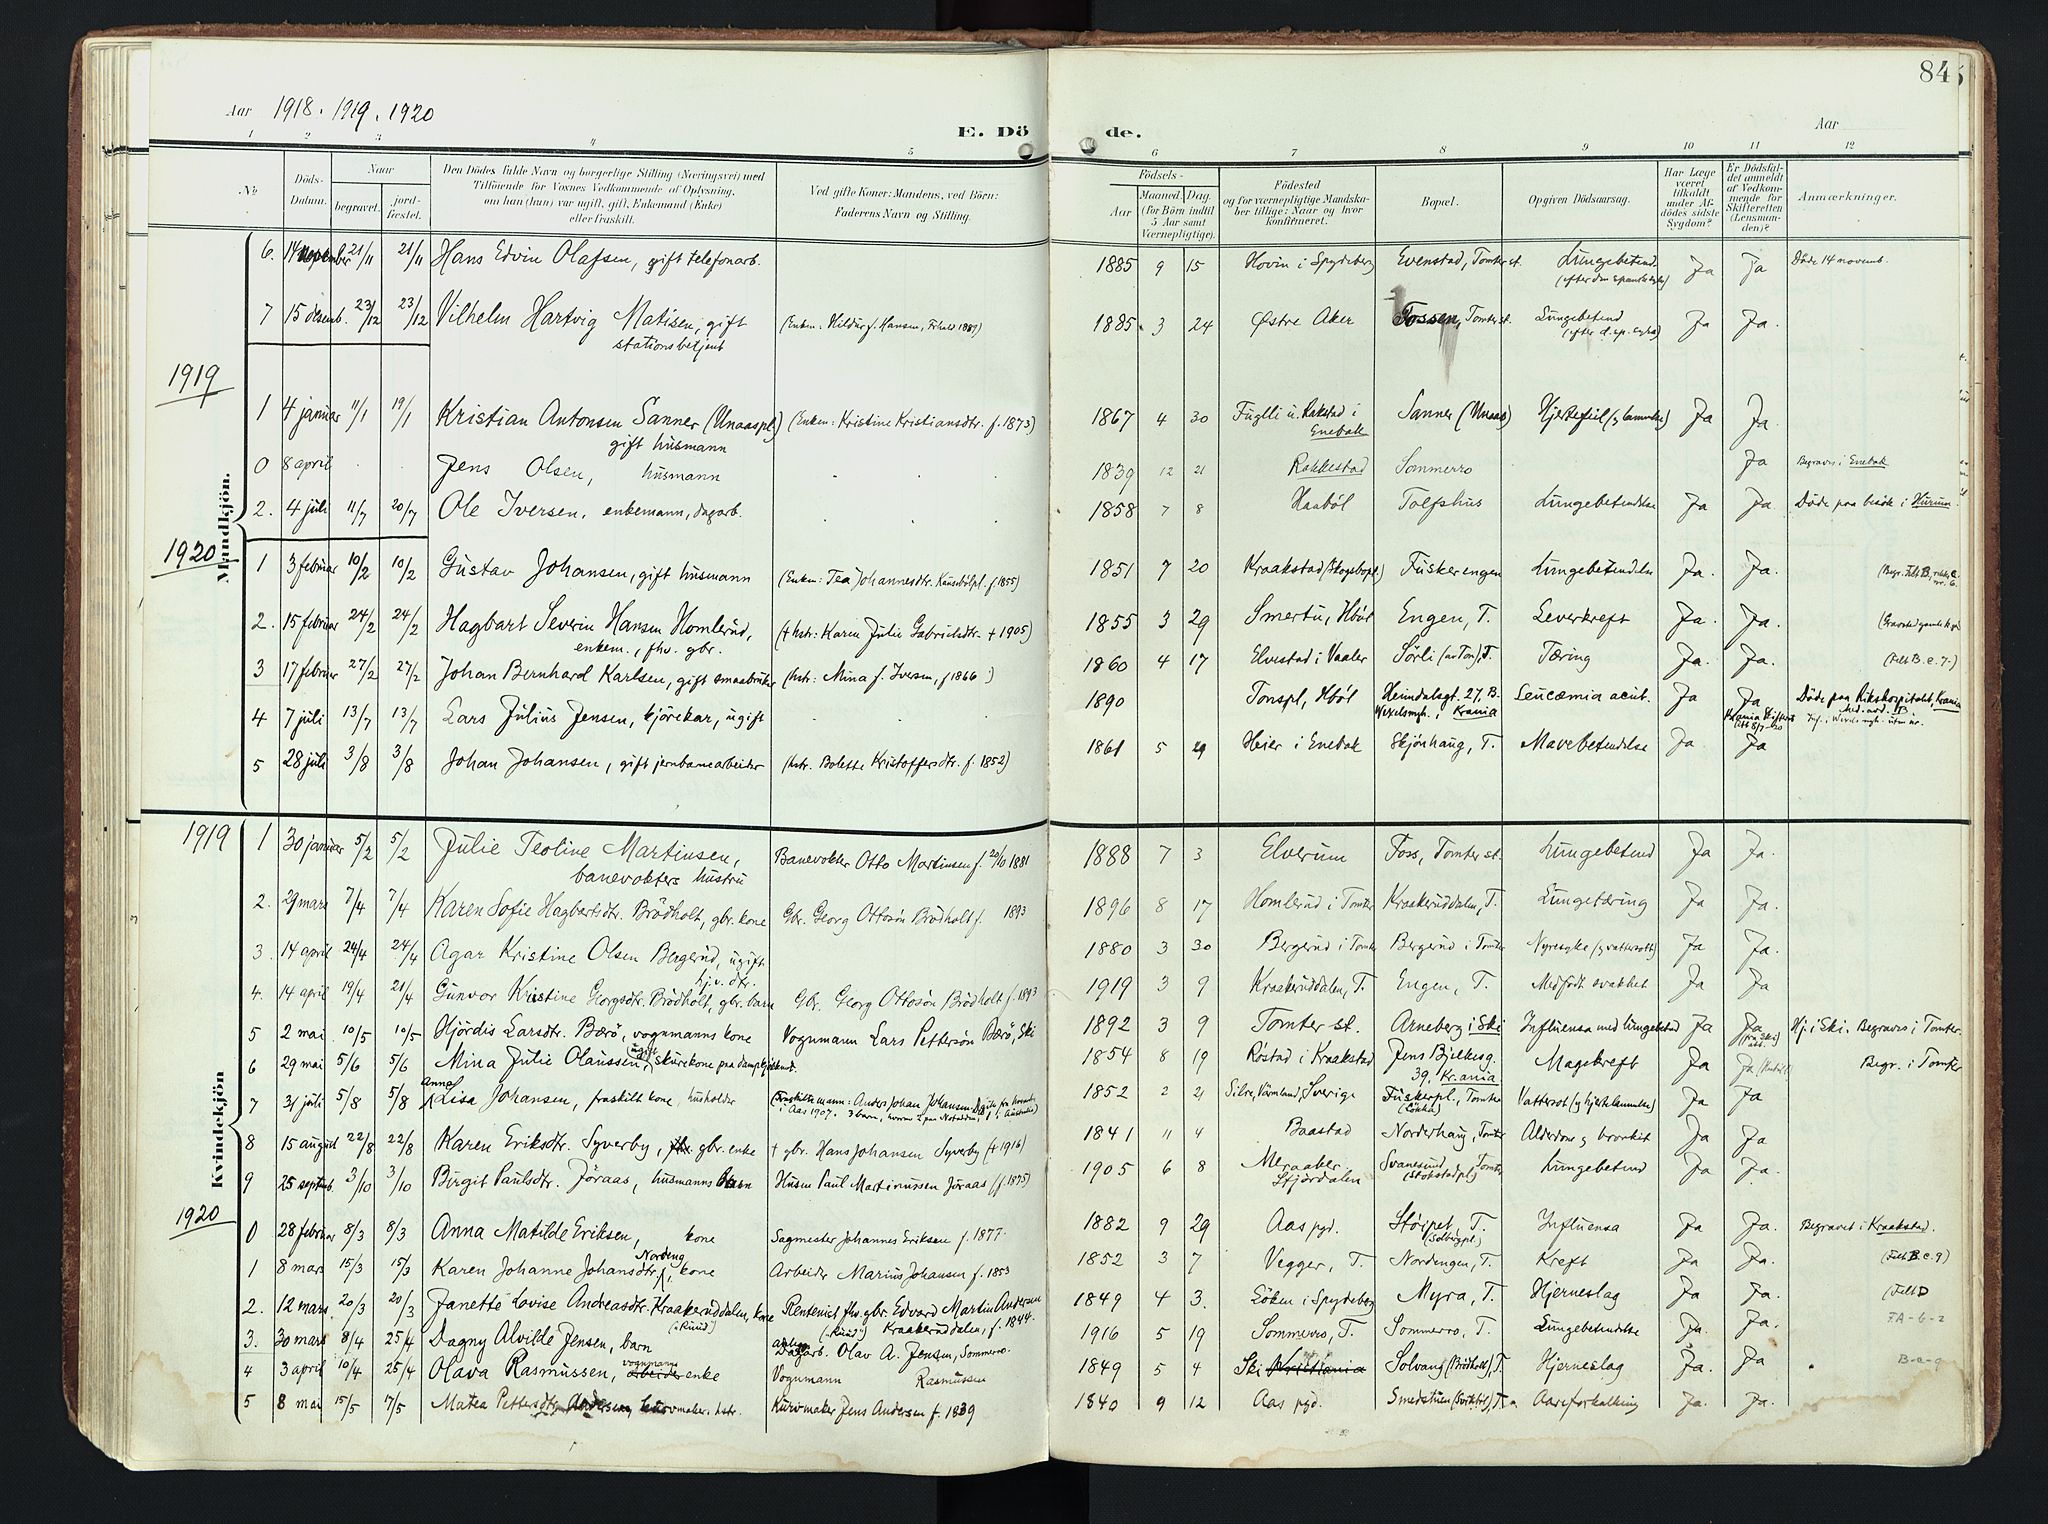 84
Aar 1918. 1919. 1920
E. Döde.
Aar
1 2 3 4 5 6 7 8 9 10 11 12
No
Döds-Datum.
Naar
begravet.
jord-fæstet.
Den Dödes fulde Navn og borgerlige Stilling (Næringsvei) med
Tilföiende for Voxnes Vedkommende af Oplysning,
om han (hun) var ugift, gift, Enkemand (Enke)
eller fraskilt.
Ved gifte Koner: Mandens, ved Börn:
Faderens Navn og Stilling.
Födsels-
Aar
Maaned. Dag.
(for Börn indtil
5 Aar samt
Værnepligtige).
Födested
og for værnepligtige Mandska-
ber tillige: Naar og hvor
konfirmeret.
Bopæl.
Opgiven Dödsaarsag.
Har Læge
været
tilkaldt
under Af-
dödes sidste
Sygdom?
Er Dödsfal-
det anmeldt
af Vedkom-
mende for
Skifteretten
(Lensman-
den)?
Anmærkninger.
Mandkjön.
6. 14 november 21/11 21/11 Hans Edvin Olafsen, gift telefonarb. 1885 9 15 Hovin i Spydeberg Evenstad, Tomter st. Lungebetend. Ja Ja Döde 14 novemb.
7 15 desemb. 23/12 23/12 Vilhelm Hartvig Matisen, gift stationsbetjent (Enken: Hildur f. Hansen, 1885 3 24 Østre Aker Tossen, Tomter st. Lungebetend (efter d. sp. syke) Ja Ja.
1919
1 4 januar 11/1 19/1 Kristian Antonsen Sanner (Unaaspl.) gift husmann (Enken: Kristine Kristiansdtr. f. 1873) 1867 4 30 Fuglli u. Rakstad i Enebak Sanner (Unaas) Hjertefeil Ja Ja.
0 8 april Jens Olsen, husmann 1839 12 21 Rakkestad Sommerro Ja Begraves i Enebak
2. 4 juli 11/7 20/7 Ole Iversen, enkemann, dagarb. 1858 7 8 Haabøl Tolfshus Lungebetendelse Ja Ja. Döde paa besök i Hurum.
1920
1 3 februar 10/2 10/2 Gustav Johansen, gift husmann (Enken: Tea Johannesdtr. f 1855) 1851 7 20 Kraakstad Fuskerengen Lungebetendelse Ja. Ja.
2. 15 februar 24/2 24/2 Hagbart Severin Hansen Homlerud, enkem., fhv. gbr. († hstr: Karen Julie Gabrielsdtr. † 1905) 1855 3 29 Smertu, Hböl Engen, T. Leverkreft Ja. Ja.
3 17 februar 27/2 27/2 Johan Bernhard Karlsen, gift smaabruker (hstr: Mina f. Iversen, f 1866) 1860 4 17 Elvestad i Vaaler Sørli, T. Tæring Ja. Ja. (Felt B. c. 7.)
4 7 juli 13/7 13/7 Lars Julius Jensen, kjörekar, ugift 1890 Tonspl, Hböl Heimdalsgt. 27, B. Krania Leucæmia acut. Ja Ja Döde paa Rikshospitalet, Krania
5 28 juli 3/8 3/8 Johan Johansen, gift jernbanearbeider (hstr. Bolette Kristoffersdtr. f. 1852) 1861 5 29 Heier i Enebak Skjönhaug, T. Mavebetendelse Ja Ja
Kvindekjön
1919
1 30 januar 5/2 5/2 Julie Teoline Martinsen, banevokters hustru Banevokter Otto Martinsen f. 1881 1888 7 3 Elverum Foss, Tomter st. Lungebetend Ja Ja.
2. 29 mars 7/4 7/4 Karen Sofie Hagbartsdtr. Brödholt, gbr. kone Gbr. Georg Ottosön Brödholt f. 1893 1896 8 17 Homlerud i Tomter Kraakeruddalen, T. Lungetæring Ja Ja.
3. 14 april 24/4 24/4 Agar Kristine Olsen Bergerud, ugift hj.v. dtr. 1880 3 30 Bergerud i Tomter Bergerud i Tomter Nyresyke (og vattersott) Ja Ja.
4. 14 april 19/4 21/4 Gunvor Kristine Georgsdtr. Brödholt, gbr. barn Gbr. Georg Ottosön Brödholt f. 1893 1919 3 9 Kraakeruddalen, T. Engen, T. Medfödt svakhet Ja Ja
5 2 mai 10/5 10/5 Hjördis Larsdtr. Bærö, vognmanns kone Vognmann Lars Pettersön Bærö, Ski 1892 3 9 Tomter st. Arneberg i Ski Influensa med lungebetend Ja Ja Hj. i Ski. Begraves i Tomter.
6 29 mai 5/6 5/6 Mina Julie Olaussen, ugift, skurekone paa 1854 8 19 Röstad i Kraakstad Jens Bjelkesg. 39, Kr.ania Magekreft Ja Ja Begr. i Tomter
7 31 juli 5/8 5/8 Anna Lisa Johansen, fraskilt kone, husholder (Fraskilte mann: Anders Johan Johansen 1852 2 21 Silre, Värmland, Sverige Fuskerpl., Tomter Vattersot (og hjertelammelse) Ja Ja
8 15 august 22/8 22/8 Karen Eriksdtr. Syverby, gbr. enke † gbr. Hans Johansen Syverby († 1916) 1841 11 4 Baastad Norderhaug, Tomter Alderdom og bronkit Ja Ja
9 25 septemb. 3/10 3/10 Birgit Paulsdtr. Jöraas, husmanns barn Husm Paul Martinussen Jöraas (f. 1875) 1905 6 8 Meraaker Stjördalen Svanesund, Tomter (Stokstadpl.) Lungebetend Ja Ja.
1920
0 28 februar 8/3 8/3 Anna Matilde Eriksen, kone Sagmester Johannes Eriksen f. 1877. 1882 9 29 Aas pgd. Stöipet, T. (Solbergpl.) Influensa Ja Ja. Begravet i Kraakstad.
1 8 mars 15/3 15/3 Karen Johanne Johansdtr. Nordeng, kone Arbeider Marius Johansen f. 1853 1852 3 7 Vegger, T. Nordengen, T. Kreft Ja Ja. (Felt B c. 9)
2. 12 mars 20/3 20/3 Janette Lovise Andreasdtr. Kraakeruddalen, kone (Ruud) Rentenist fhv. gbr Edvard Martin Andersen (Ruud) Kraakeruddalen, f. 1844. 1849 4 3. Löken i Spydeberg Myra, T. Hjerneslag Ja Ja. (Felt D
3. 30 mars 8/4 25/4 Dagny Alvilde Jensen, barn Dagarb. Olav A. Jensen, Sommerro. 1916 5 19 Sommerro, T. Sommerro, T. Lungebetendelse Ja. Ja. FA-6-2
4 3 april 10/4 25/4 Olava Rasmussen, vognmanns arbeider enke Vognmann Rasmussen 1849 5 4 Ski Kristiania Solvang (Brödholt), T. Hjerneslag Ja. Ja. B-c-9
5 8 mai 15/5 17/5 Matea Pettersdtr. Andersen, kurvmaker. hstr. Kurvmaker Jens Andersen f. 1839 1840 9 12 Aas pgd. Smedstuen, T. Aareforkalkning Ja. Ja.